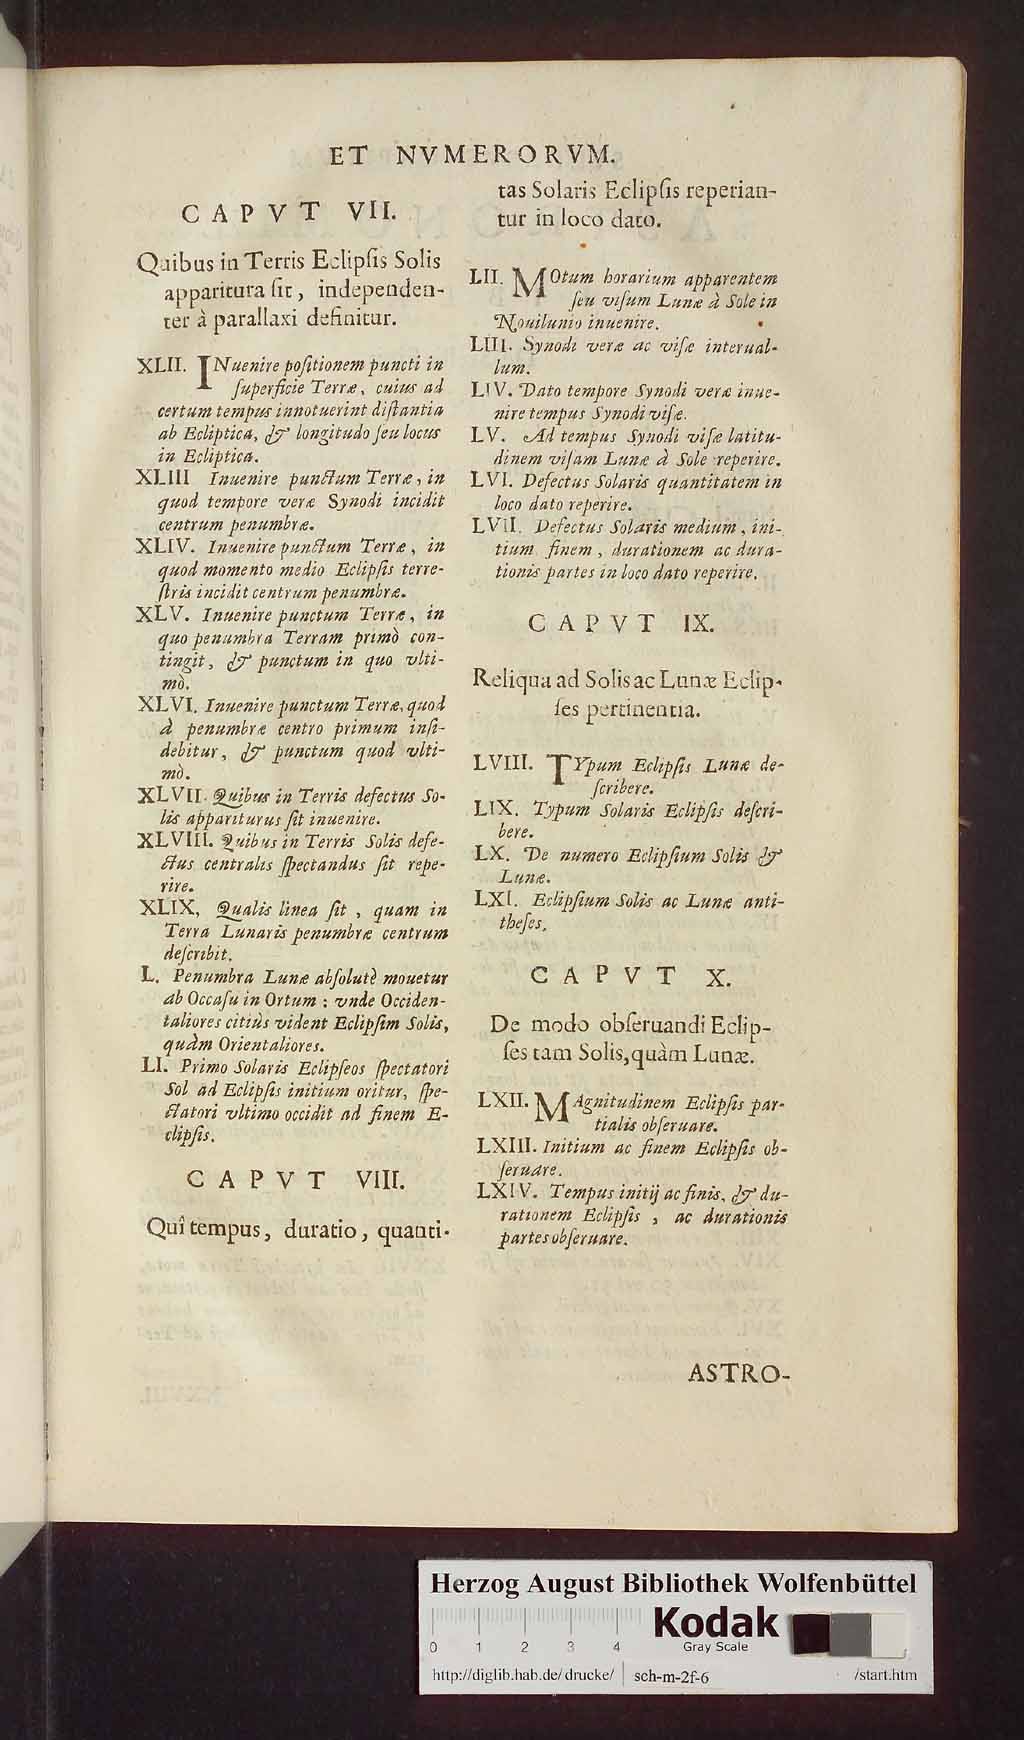 ET NVMERORVM.
CAPVT VII.
Quibus in Terris Eclipſis Solis
apparitura ſit, independen-
ter à parallaxi definitur.
XLII. INuenire poſitionem puncti in
ſuperficie Terræ, cuius ad
certum tempus innotuerint diſtantia
ab Ecliptica, & longitudo ſeu locus
in Ecliptica.
XLIII Inuenire punctum Terræ, in
quod tempore veræ Synodi incidit
centrum penumbræ.
XLIV. Inuenire punctum Terræ, in
quod momento medio Eclipſis terre-
ſtris incidit centrum penumbræ.
XLV. Inuenire punctum Terræ, in
quo penumbra Terram primò con-
tingit, & punctum in quo vlti-
mò.
XLVI. Inuenire punctum Terræ, quod
à penumbræ centro primum inſi-
debitur, & punctum quod vlti-
mò.
XLVII. Quibus in Terris defectus So-
lis appariturus ſit inuenire.
XLVIII. Quibus in Terris Solis defe-
ctus centralis ſpectandus ſit repe-
rire.
XLIX, Qualis linea ſit, quam in
Terra Lunaris penumbræ centrum
deſcribit.
L. Penumbra Lunæ abſolutè mouetur
ab Occaſu in Ortum: vnde Occiden-
taliores citiùs vident Eclipſim Solis,
quàm Orientaliores.
LI. Primo Solaris Eclipſeos ſpectatori
Sol ad Eclipſis initium oritur, ſpe-
ctatori vltimo occidit ad finem E-
clipſis.
CAPVT VIII.
Quî tempus, duratio, quanti-
tas Solaris Eclipſis reperian-
tur in loco dato.
LII. MOtum horarium apparentem
ſeu viſum Lunæ à Sole in
Nouilunio inuenire.
LIII. Synodi veræ ac viſæ interual-
lum.
LIV. Dato tempore Synodi veræ inue-
nire tempus Synodi viſæ.
LV. Ad tempus Synodi viſæ latitu-
dinem viſam Lunæ à Sole reperire.
LVI. Defectus Solaris quantitatem in
loco dato reperire.
LVII. Defectus Solaris medium, ini-
tium finem, durationem ac dura-
tionis partes in loco dato reperire.
CAPVT IX.
Reliqua ad Solis ac Lunæ Eclip-
ſes pertinentia.
LVIII. TYpum Eclipſis Lunæ de-
ſcribere.
LIX. Typum Solaris Eclipſis deſcri-
bere.
LX. De numero Eclipſium Solis &
Lunæ.
LXI. Eclipſium Solis ac Lunæ anti-
theſes.
CAPVT X.
De modo obſeruandi Eclip-
ſes tam Solis, quàm Lunæ.
LXII. MAgnitudinem Eclipſis par-
tialis obſeruare.
LXIII. Initium ac finem Eclipſis ob-
ſeruare.
LXIV. Tempus initij ac finis, & du-
rationem Eclipſis, ac durationis
partes obſeruare.
ASTRO-
Herzog August Bibliothek Wolfenbüttel
Kodak
Gray Scale
0 1 2 3 4
http://diglib.hab.de/drucke/ sch-m-2f-6 /start.htm